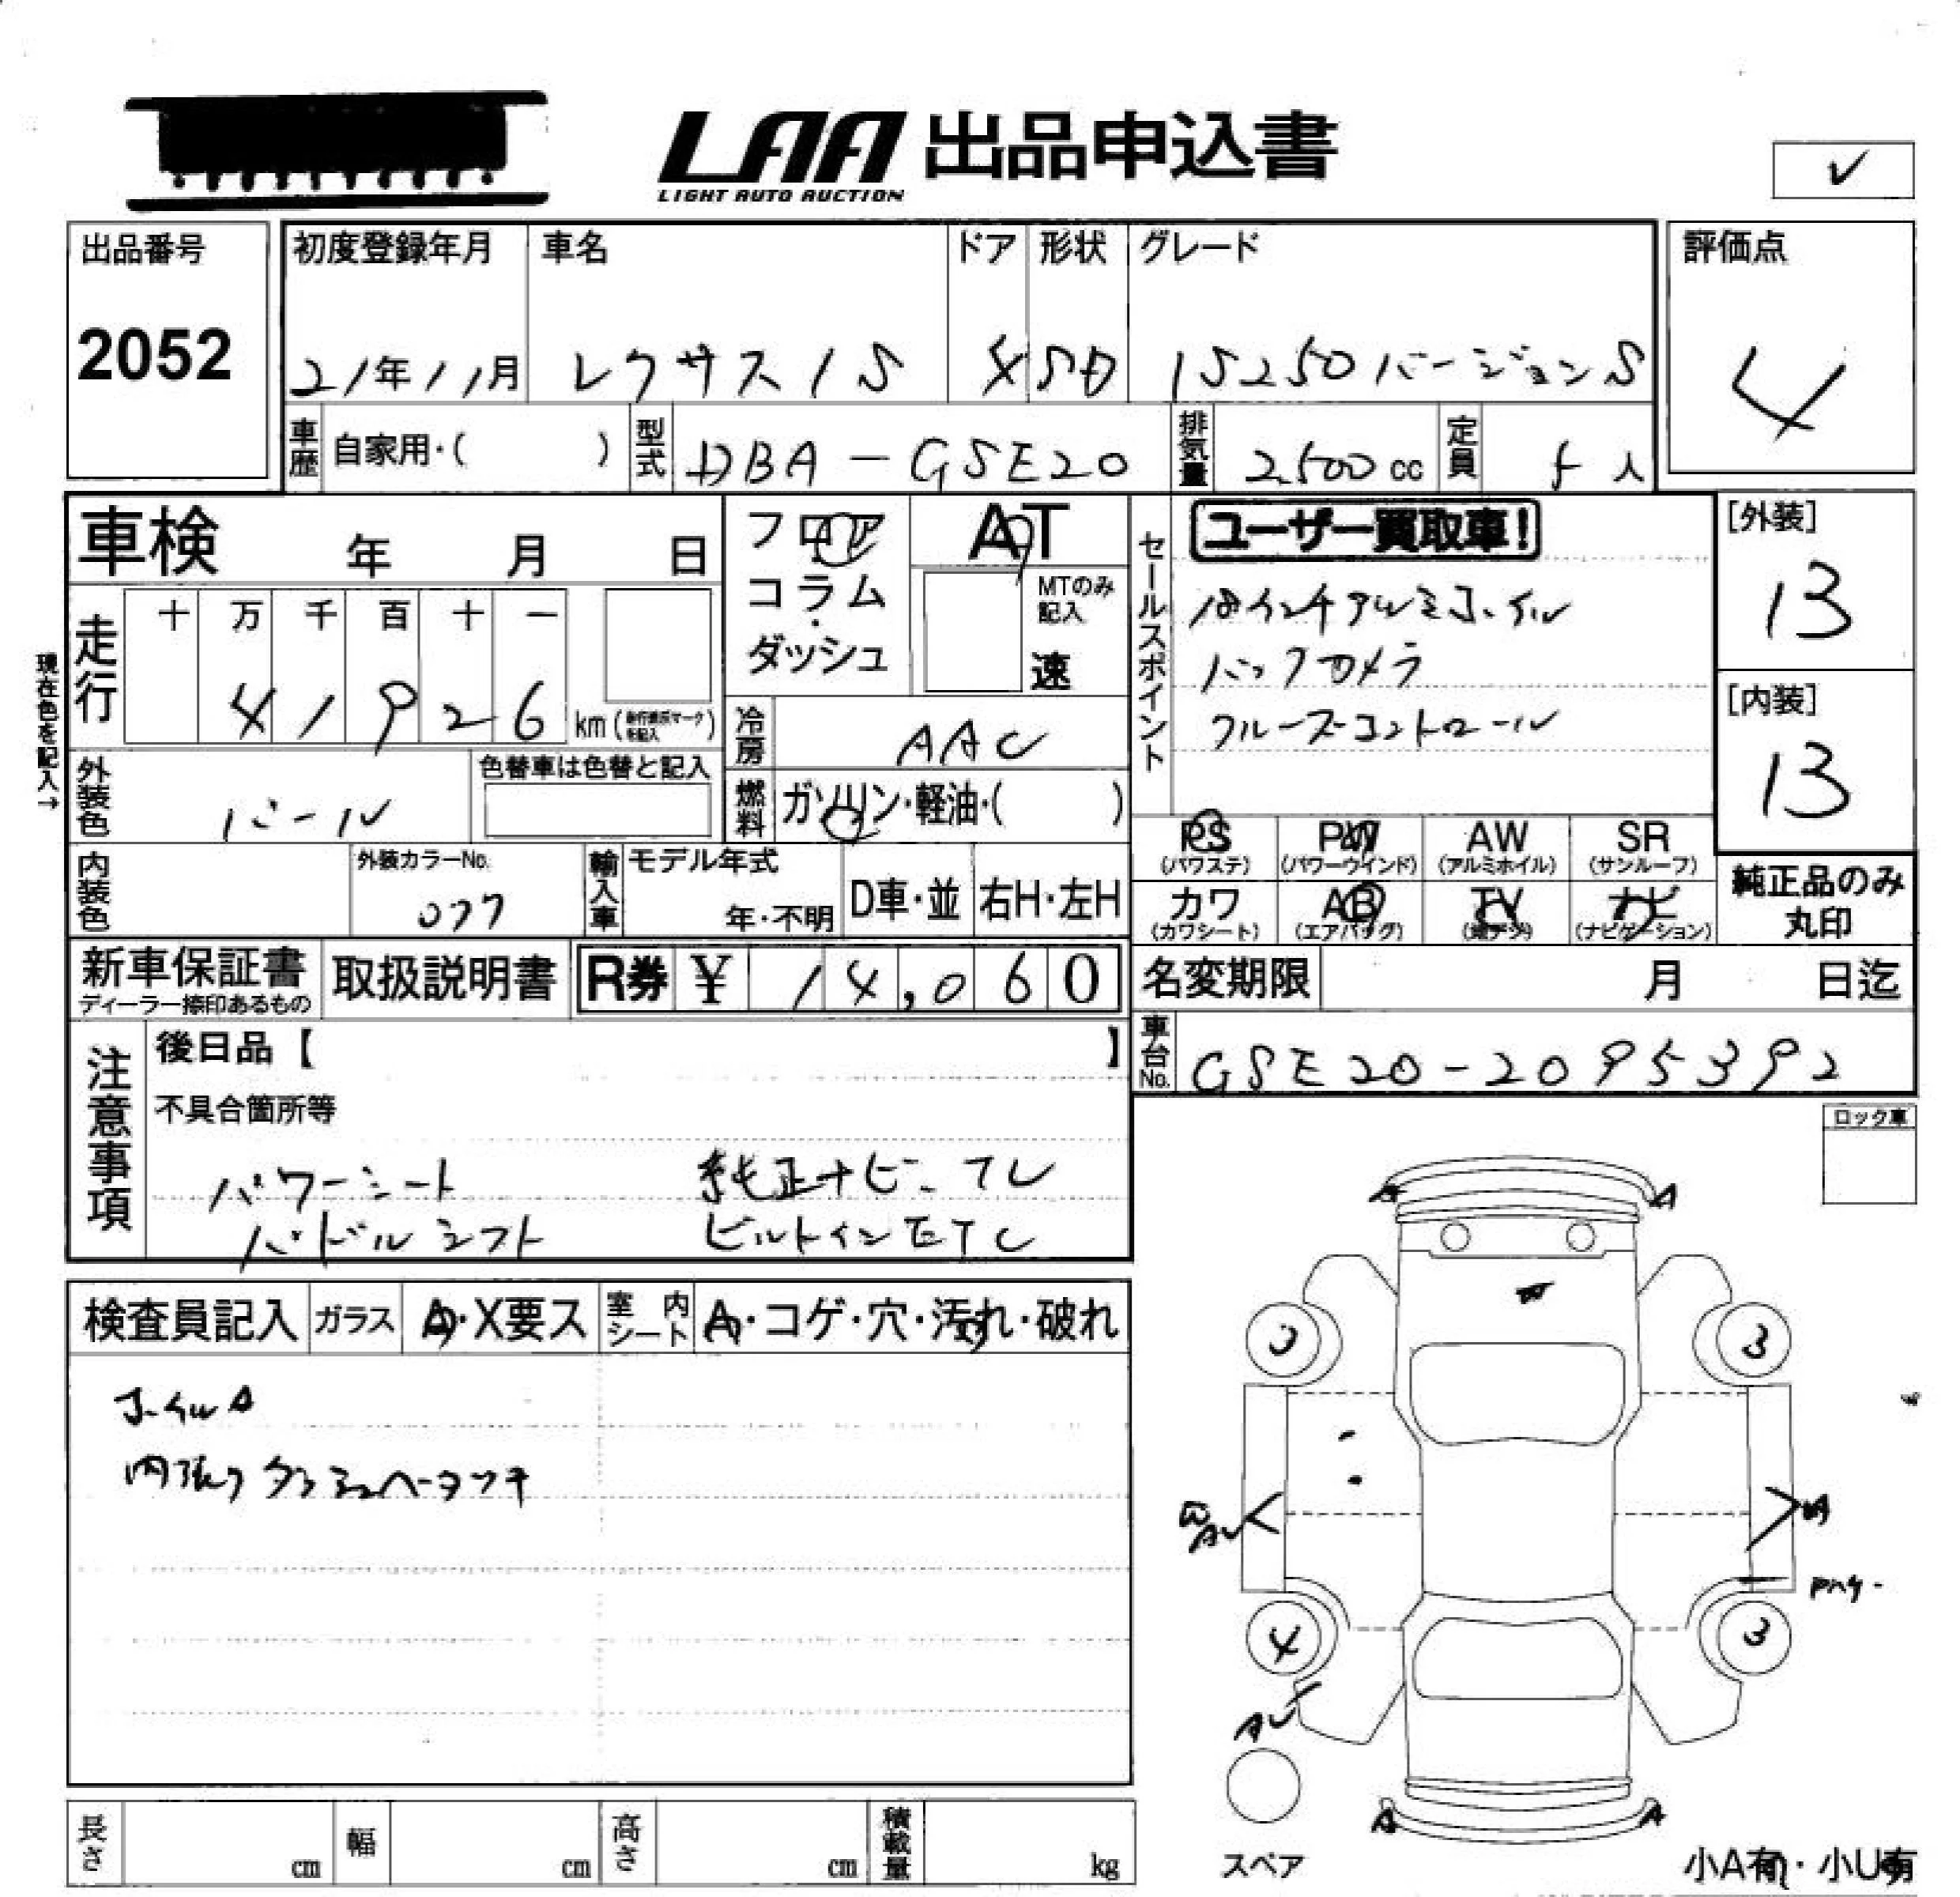 LAA 出品申込書
LIGHT AUTO AUCTION
✓
出品番号
2052
初度登録年月
21年11月
車名
レクサスIS
ドア
4
形状
SD
グレード
IS250バージョンS
評価点
4
車歴 自家用・( )
型式 DBA-GSE20
排気量 2,500cc
定員 5人
車検 年 月 日
フロア
コラム
・
ダッシュ
AT
MTのみ
記入
速
セールスポイント
ユーザー買取車!
18インチアルミホイル
バックカメラ
クルーズコントロール
[外装]
13
[内装]
13
現在色を記入→
走行
十 万 千 百 十 一
41926 km
冷房 AAC
外装色 パール
色替車は色替と記入
燃料 ガソリン・軽油・( )
PS (パワステ)
PW (パワーウインド)
AW (アルミホイル)
SR (サンルーフ)
カワ (カワシート)
AB (エアバッグ)
TV (地デジ)
ナビ (ナビゲーション)
純正品のみ
丸印
内装色
外装カラーNo.
077
輸入車
モデル年式
年・不明
D車・並
右H・左H
新車保証書
ディーラー捺印あるもの
取扱説明書
R券 ¥ 14,060
名変期限 月 日迄
車台No. GSE20-2095392
注意事項
後日品【 】
不具合箇所等
パワーシート 純正ナビ、TV
パドルシフト ビルトインETC
ロック車
検査員記入
ガラス A・X要ス
室内シート A・コゲ・穴・汚れ・破れ
ホイルA
内張りダッシュヘータッチ
A A
3 3
4 3
AU
A A
スペア
小A有・小U有
長さ cm
幅 cm
高さ cm
積載量 kg